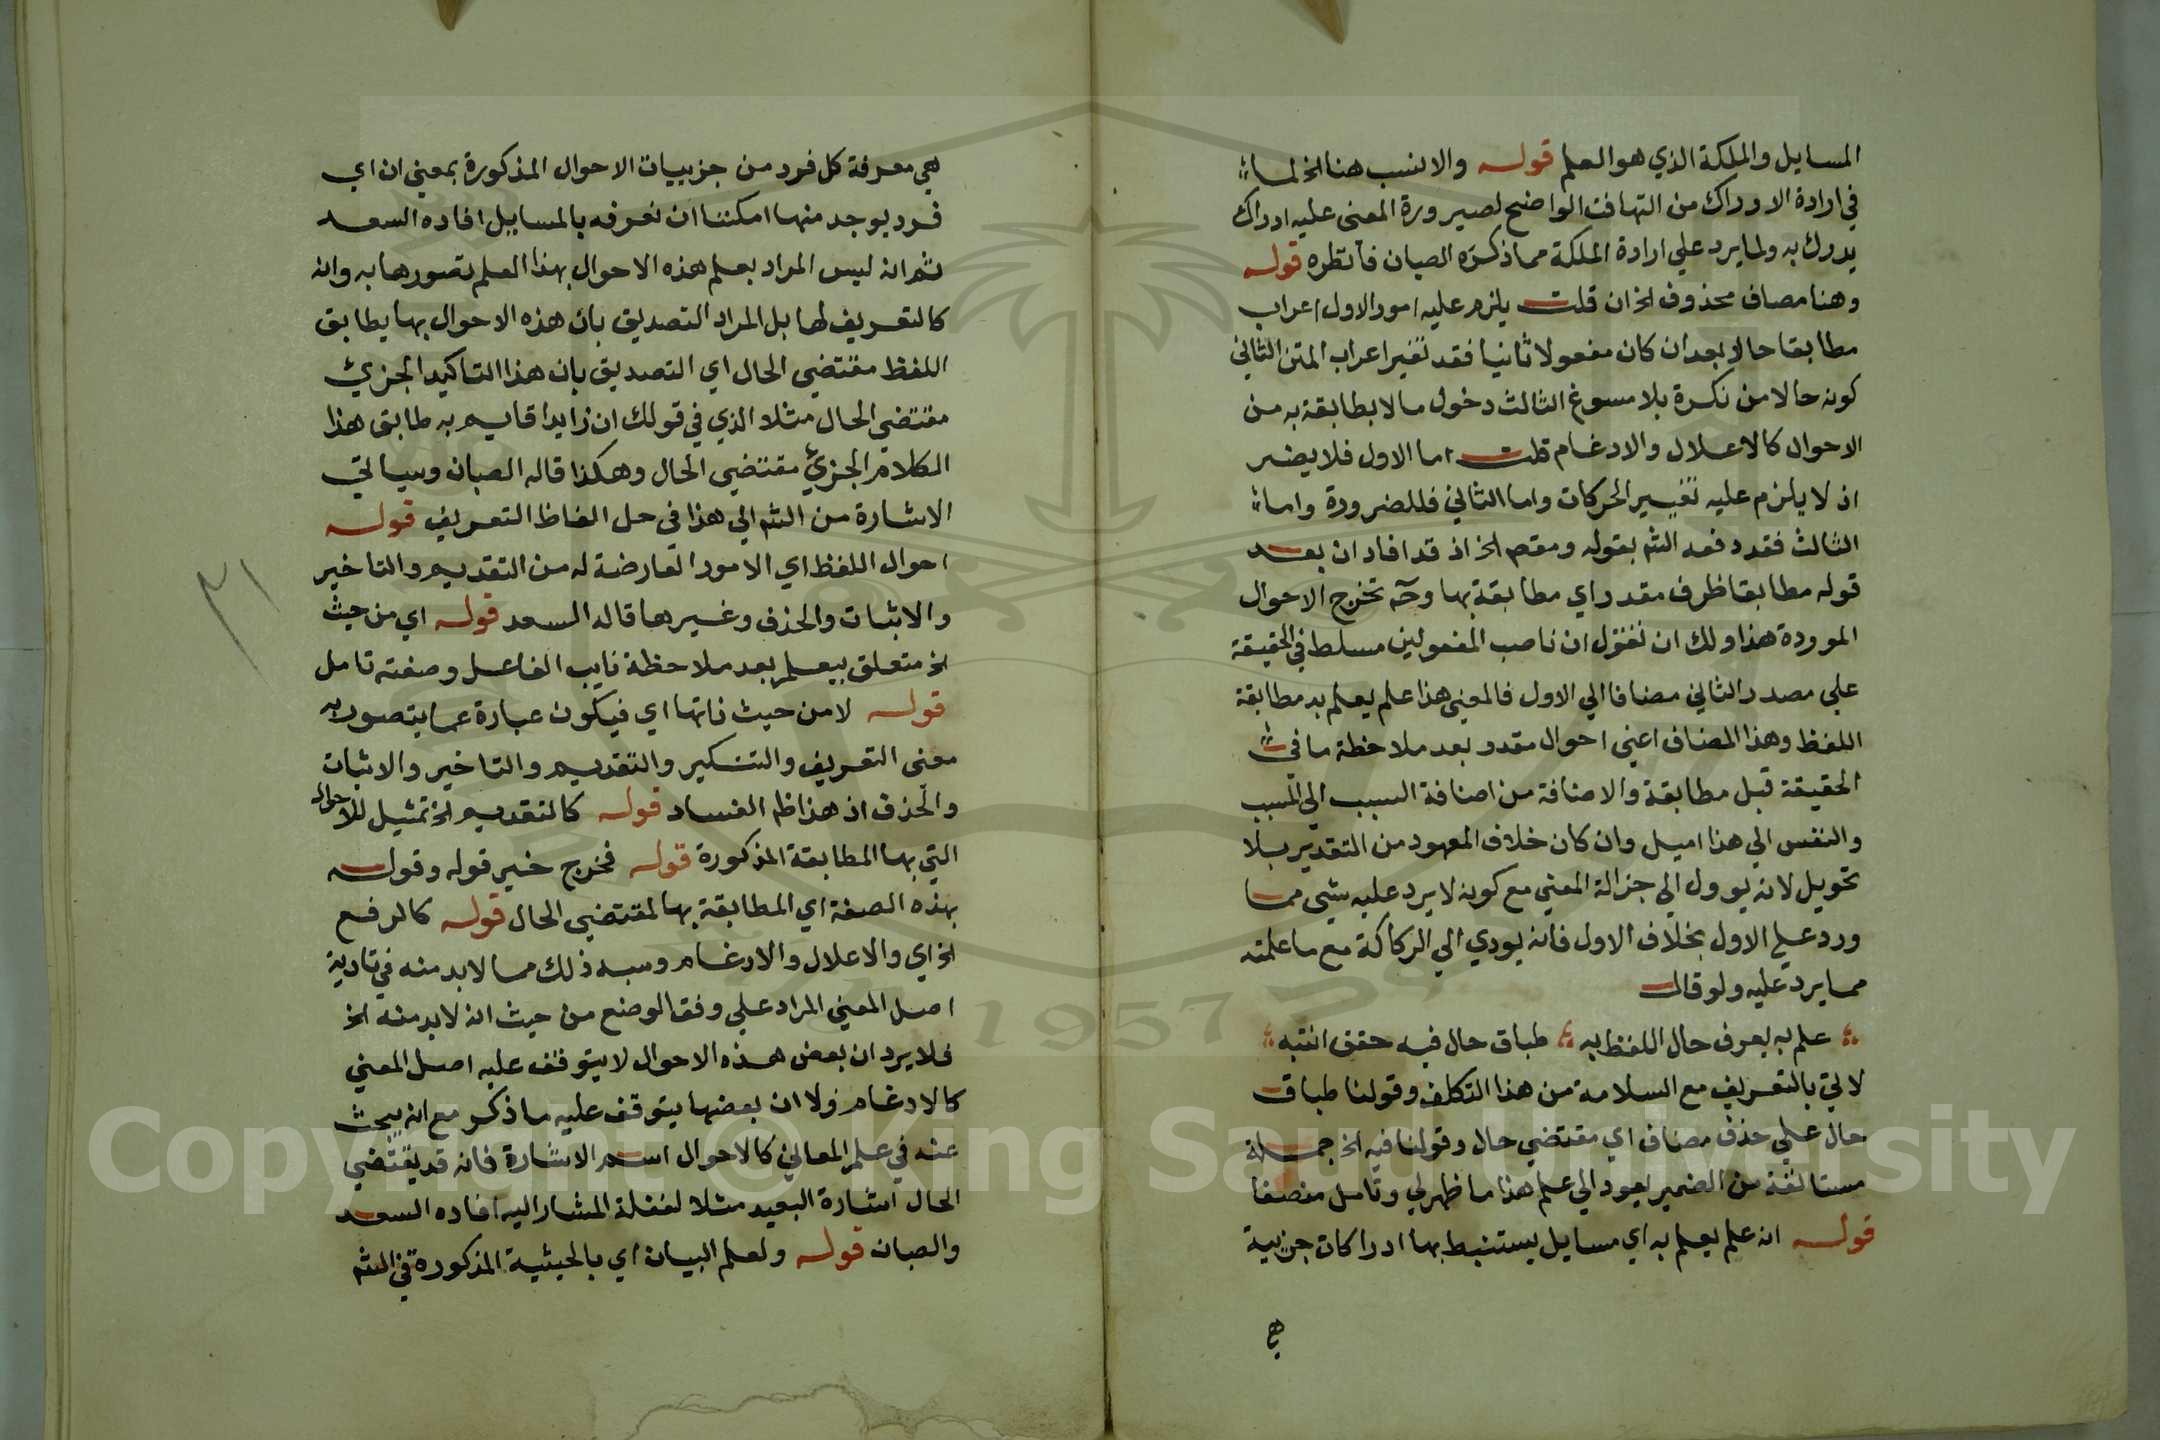 المسايل والملكة الذي هو العلم قوله والانسب هنا الخ لما
في ارادة الادراك من التهافت الواضح لصيرورة المعنى عليه ادراك
يدرك به ولما يرد علي ارادة الملكة مما ذكره الصبان فانظره قوله
وهنا مضاف محذوف الخ ان قلت يلزم عليه امور الاول اعراب
مطابقا حالا بعد ان كان مفعولا ثانيا فقد تغير اعراب المتن الثاني
كونه حالا من نكرة بلا مسوغ الثالث دخول ما لا يطابقة به من
الاحوال كالاعلال والادغام قلت اما الاول فلا يضر
اذ لا يلزم عليه تغيير الحركات واما الثاني فللضرورة واما
الثالث فقد دفعه الشم بقوله ومقم الخ اذ قد افاد ان بعد
قوله مطابقا ظرف مقدر اي مطابقة بها وحـ تخرج الاحوال
الموردة هذا ولك ان تقول ان ناصب المفعولين مسلط في الحقيقة
علي مصدر الثاني مضافا الي الاول فالمعني هذا علم يعلم به مطابقة
اللفظ وهذا المضاف اعني احوال مقدر بعد ملاحظة ما في
الحقيقة قبل مطابقة والاضافة من اضافة السبب الي المسبب
والنفس الي هذا اميل وان كان خلاف المعهود من التقدير بلا
تحويل لانه يوول الي جزالة المعني مع كونه لا يرد عليه شي مما
ورد علي الاول بخلاف الاول فانه يودي الي الركاكة مع ما علمته
مما يرد عليه ولو قال
علم به يعرف حال اللفظ به طباق حال فيه حقق انتبه
لاتي بالتعريف مع السلامة من هذا التكلف وقولنا طباق
حال علي حذف مضاف اي مقتضي حال وقولنا فيه الخ جملة
مستانفة من الضمير يعود الي علم هذا ما ظهر لي وتامل منصفا
قوله انه علم يعلم به اي مسايل يستنبط بها ادراكات جزيية
هي
هي معرفة كل فرد من جزييات الاحوال المذكورة بمعني ان اي
فرد يوجد منها امكننا ان نعرفه بالمسايل افاده السعد
ثم انه ليس المراد بعلم هذه الاحوال بهذا العلم تصورها به وانه
كالتعريف لها بل المراد التصديق بان هذه الاحوال بها يطابق
اللفظ مقتضي الحال اي التصديق بان هذا التاكيد الجزئي
مقتضي الحال مثلا الذي في قولك ان زايدا قايم به طابق هذا
الكلام الجزئي مقتضي الحال وهكذا قاله الصبان وسياتي
الاشارة من الشم الي هذا في حل الفاظ التعريف قوله
احوال اللفظ اي الامور العارضة له من التقديم والتاخير
والاثبات والحذف وغيرها قاله السعد قوله اي من حيث
الخ متعلق بيعلم بعد ملاحظة نايب الفاعل وصفته تامل
قوله لا من حيث ذاتها اي فيكون عبارة عما يتصور به
معني التعريف والتنكير والتقديم والتاخير والاثبات
والحذف اذ هذا ظم الفساد قوله كالتقديم الخ تمثيل للاحوال
التي بها المطابقة المذكورة قوله فخرج خير قوله وقوله
بهذه الصفة اي المطابقة بها لمقتضي الحال قوله كالرفع
الخ اي والاعلال والادغام وسبه ذلك مما لابد منه في تادية
اصل المعني المراد علي وفق الوضع من حيث انه لابد منه الخ
فلا يرد ان بعض هذه الاحوال لا يتوقف عليه اصل المعني
كالادغام ولا ان بعضها يتوقف عليه ما ذكر مع انه يبحث
عنه في علم المعاني كالاحوال اسم الاشارة فانه قد يقتضي
الحال اشارة البعيد مثلا لغفلة المشار اليه افاده السعد
والصبان قوله ولعلم البيان اي بالحيثية المذكورة في الشم
٣١
1957
Copyright © King Saud University